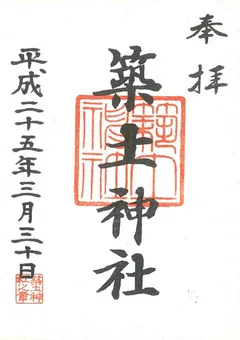 奉拝
築土神社
平成二十五年三月三十日